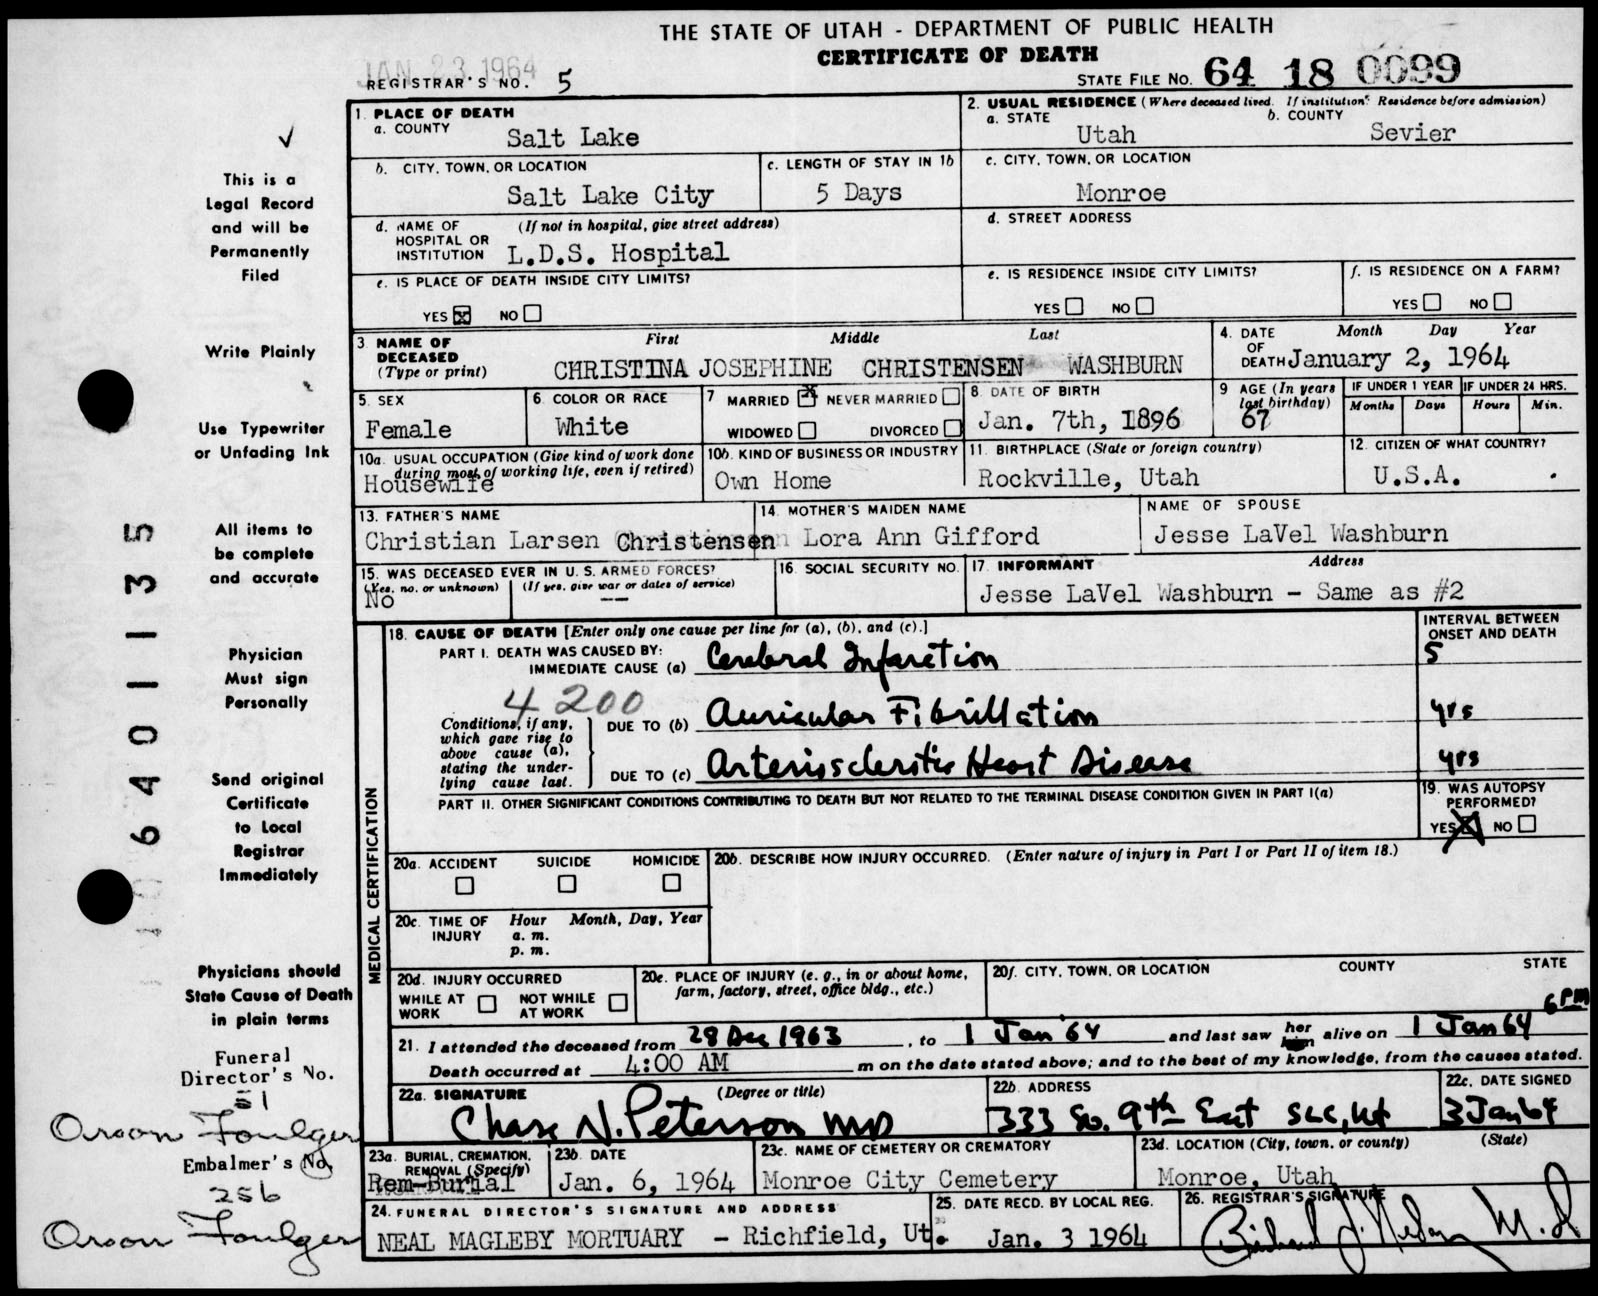 THE STATE OF UTAH - DEPARTMENT OF PUBLIC HEALTH
CERTIFICATE OF DEATH
JAN 23 1964
REGISTRAR'S NO. 5
STATE FILE NO. 64 18 0099
1. PLACE OF DEATH
a. COUNTY
Salt Lake
2. USUAL RESIDENCE (Where deceased lived. If institution: Residence before admission)
a. STATE
Utah
b. COUNTY
Sevier
b. CITY, TOWN, OR LOCATION
Salt Lake City
c. LENGTH OF STAY IN 1b
5 Days
c. CITY, TOWN, OR LOCATION
Monroe
d. NAME OF HOSPITAL OR INSTITUTION (If not in hospital, give street address)
L.D.S. Hospital
d. STREET ADDRESS
e. IS PLACE OF DEATH INSIDE CITY LIMITS?
YES X NO
e. IS RESIDENCE INSIDE CITY LIMITS?
YES NO
f. IS RESIDENCE ON A FARM?
YES NO
3 NAME OF DECEASED (Type or print)
First Middle Last
CHRISTINA JOSEPHINE CHRISTENSEN WASHBURN
4. DATE OF DEATH Month Day Year
January 2, 1964
5. SEX
Female
6. COLOR OR RACE
White
7 MARRIED X NEVER MARRIED
WIDOWED DIVORCED
8. DATE OF BIRTH
Jan. 7th, 1896
9 AGE (In years last birthday)
67
IF UNDER 1 YEAR IF UNDER 24 HRS.
Months Days Hours Min.
10a. USUAL OCCUPATION (Give kind of work done during most of working life, even if retired)
Housewife
10b. KIND OF BUSINESS OR INDUSTRY
Own Home
11. BIRTHPLACE (State or foreign country)
Rockville, Utah
12. CITIZEN OF WHAT COUNTRY?
U.S.A.
13. FATHER'S NAME
Christian Larsen Christensen
14. MOTHER'S MAIDEN NAME
Lora Ann Gifford
NAME OF SPOUSE
Jesse LaVel Washburn
15. WAS DECEASED EVER IN U. S. ARMED FORCES?
(Yes, no. or unknown) (If yes, give war or dates of service)
No --
16. SOCIAL SECURITY NO.
17. INFORMANT Address
Jesse LaVel Washburn - Same as #2
18. CAUSE OF DEATH [Enter only one cause per line for (a), (b), and (c).]
INTERVAL BETWEEN ONSET AND DEATH
PART I. DEATH WAS CAUSED BY:
IMMEDIATE CAUSE (a) Cerebral Infarction
5
4200
Conditions, if any, which gave rise to above cause (a), stating the underlying cause last.
DUE TO (b) Auricular Fibrillation
yrs
DUE TO (c) Arteriosclerotic Heart Disease
yrs
PART II. OTHER SIGNIFICANT CONDITIONS CONTRIBUTING TO DEATH BUT NOT RELATED TO THE TERMINAL DISEASE CONDITION GIVEN IN PART I(a)
19. WAS AUTOPSY PERFORMED?
YES X NO
MEDICAL CERTIFICATION
20a. ACCIDENT SUICIDE HOMICIDE
20b. DESCRIBE HOW INJURY OCCURRED. (Enter nature of injury in Part I or Part II of item 18.)
20c. TIME OF INJURY Hour Month, Day, Year
a. m.
p. m.
20d. INJURY OCCURRED
WHILE AT WORK NOT WHILE AT WORK
20e. PLACE OF INJURY (e. g., in or about home, farm, factory, street, office bldg., etc.)
20f. CITY, TOWN, OR LOCATION COUNTY STATE
6 PM
21. I attended the deceased from 28 Dec 1963, to 1 Jan '64 and last saw her him alive on 1 Jan 64
Death occurred at 4:00 AM m on the date stated above; and to the best of my knowledge, from the causes stated.
22a. SIGNATURE (Degree or title)
Chase N. Peterson MD
22b. ADDRESS
333 So. 9th East SLC, Ut
22c. DATE SIGNED
3 Jan 64
23a. BURIAL, CREMATION, REMOVAL (Specify)
Rem-Burial
23b. DATE
Jan. 6, 1964
23c. NAME OF CEMETERY OR CREMATORY
Monroe City Cemetery
23d. LOCATION (City, town, or county) (State)
Monroe, Utah
24. FUNERAL DIRECTOR'S SIGNATURE AND ADDRESS
NEAL MAGLEBY MORTUARY - Richfield, Ut.
25. DATE RECD. BY LOCAL REG.
Jan. 3 1964
26. REGISTRAR'S SIGNATURE
M.D
This is a
Legal Record
and will be
Permanently
Filed
Write Plainly
Use Typewriter
or Unfading Ink
All items to
be complete
and accurate
Physician
Must sign
Personally
Send original
Certificate
to Local
Registrar
Immediately
Physicians should
State Cause of Death
in plain terms
Funeral
Director's No.
51
Orson Foulger
Embalmer's No.
256
Orson Foulger
06401135